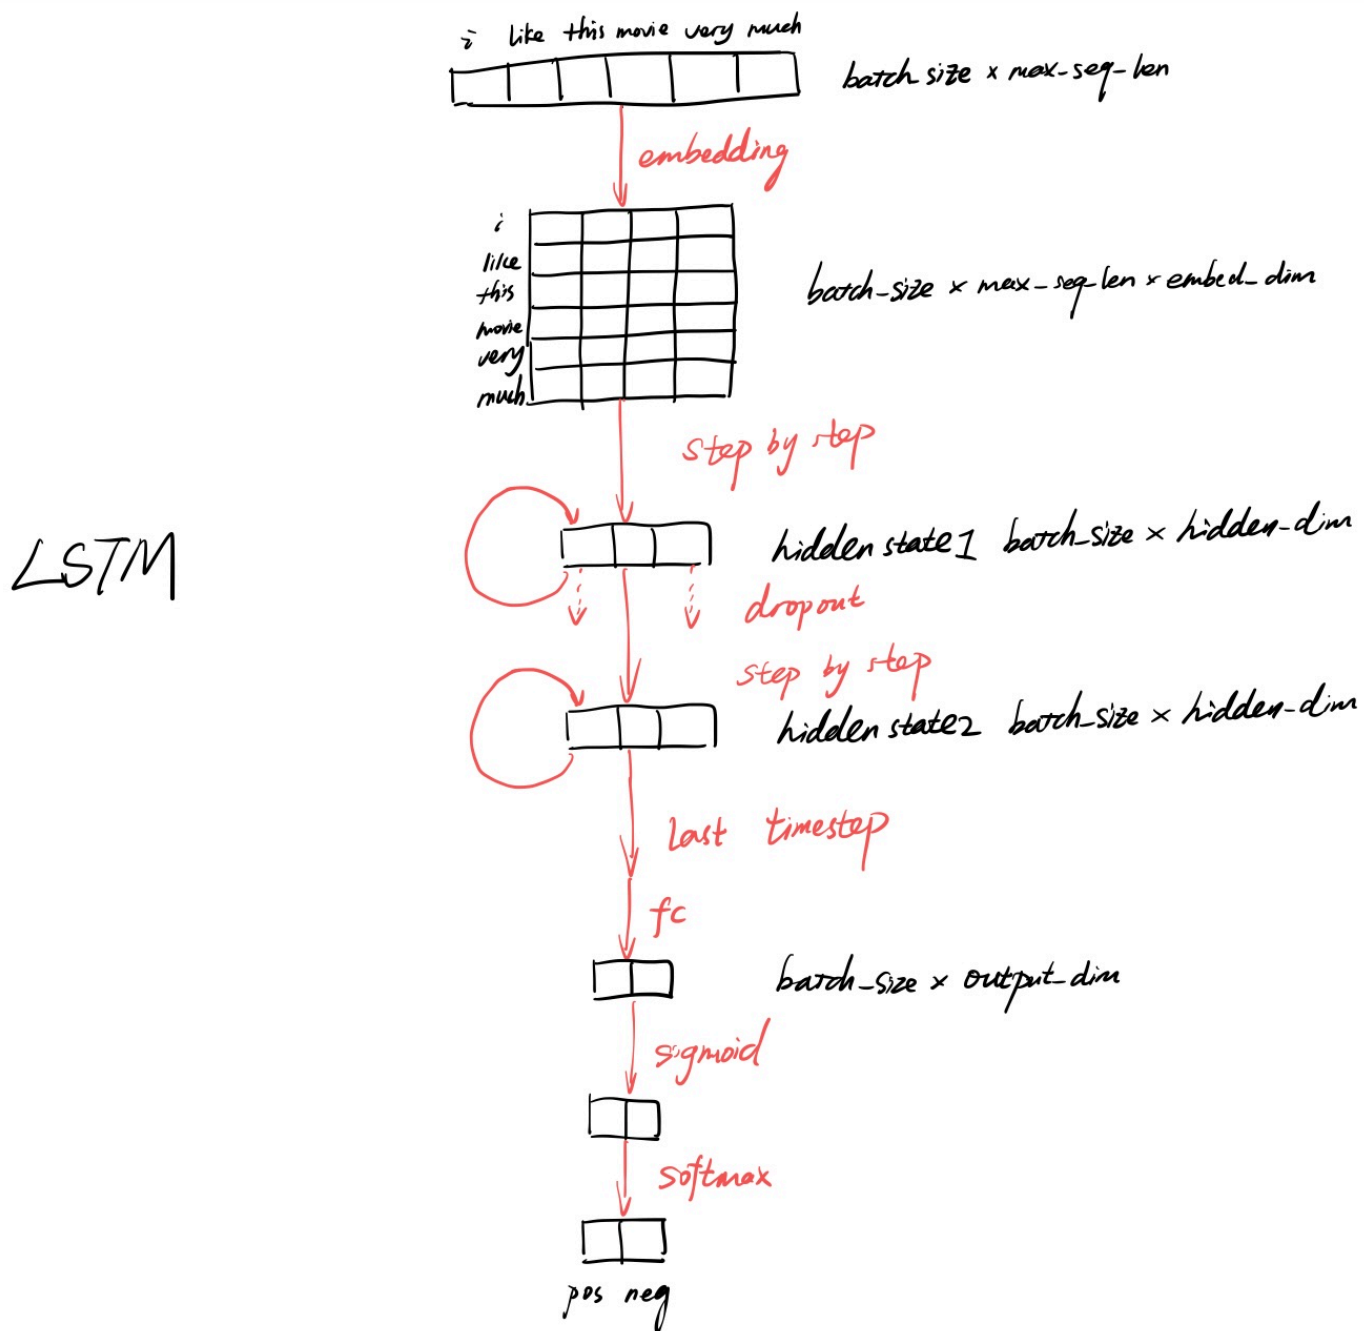 i like this movie very much
batch_size × max-seq-len
embedding
i
like
this
movie
very
much
batch_size × max_seq_len × embed_dim
step by step
LSTM
hidden state1 batch_size × hidden-dim
dropout
step by step
hidden state2 batch_size × hidden-dim
last timestep
fc
batch_size × output_dim
sigmoid
softmax
pos neg